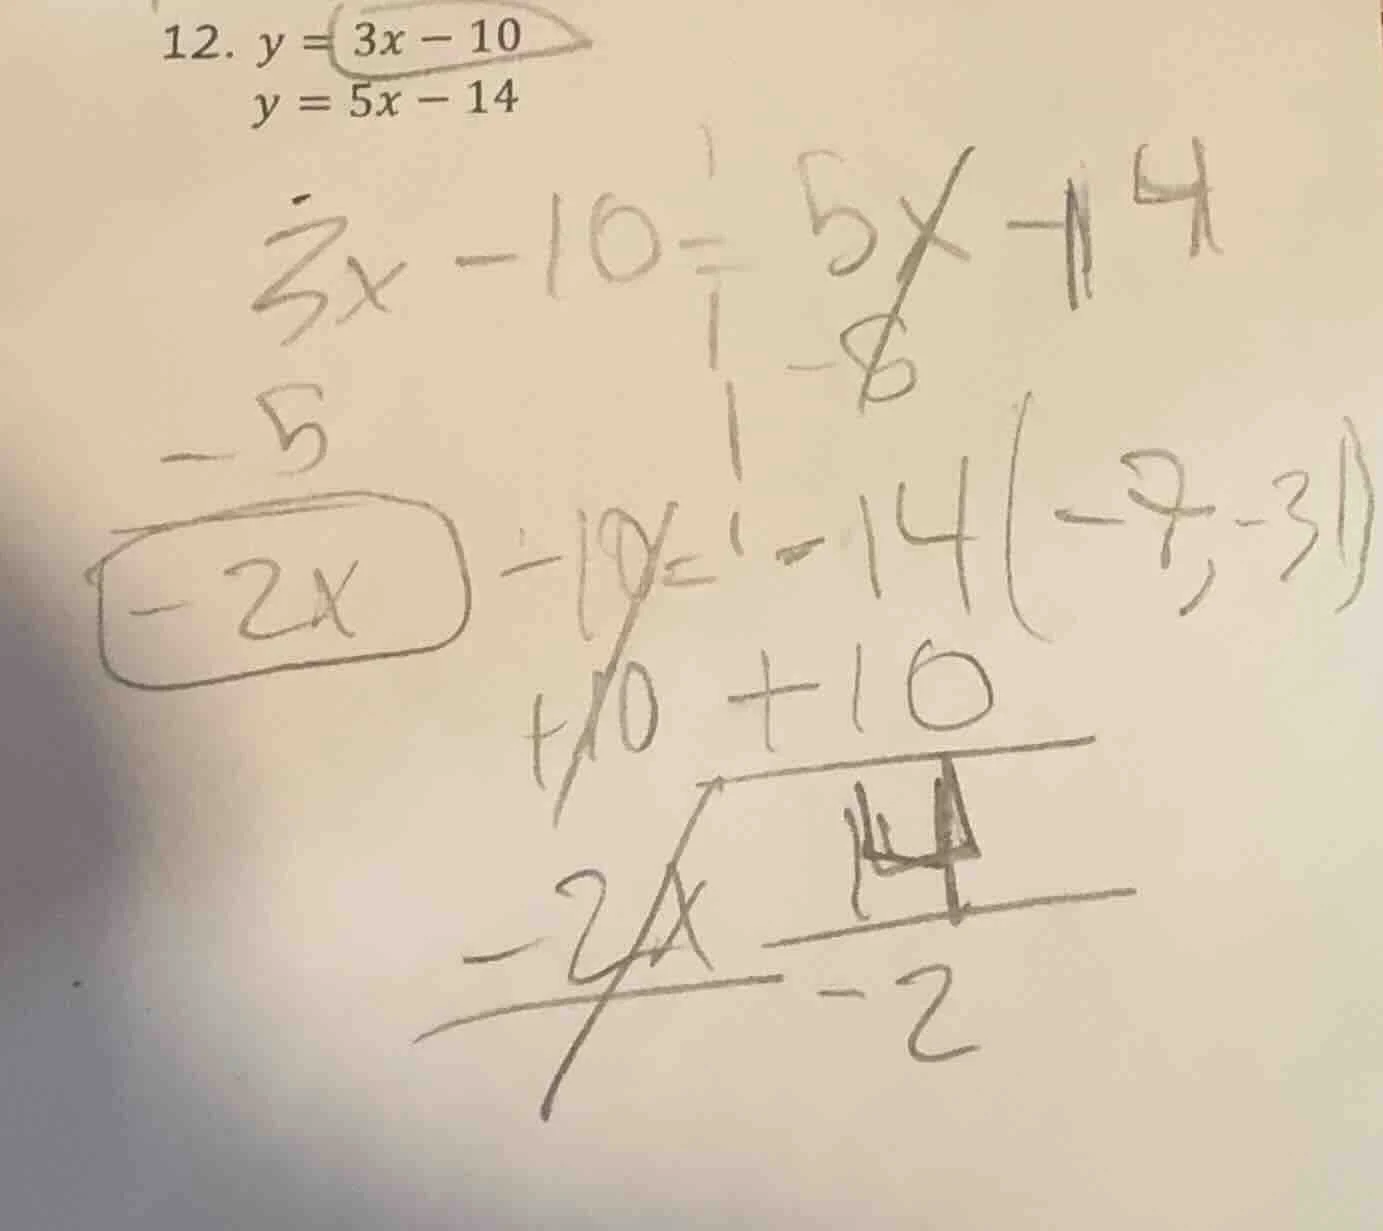 12. y = 3x − 10
y = 5x − 14
3x - 10 = 5x - 14
-5 -8
-2x - 10 = -14 (-7, -31)
+10 +10
-2x 14
-2